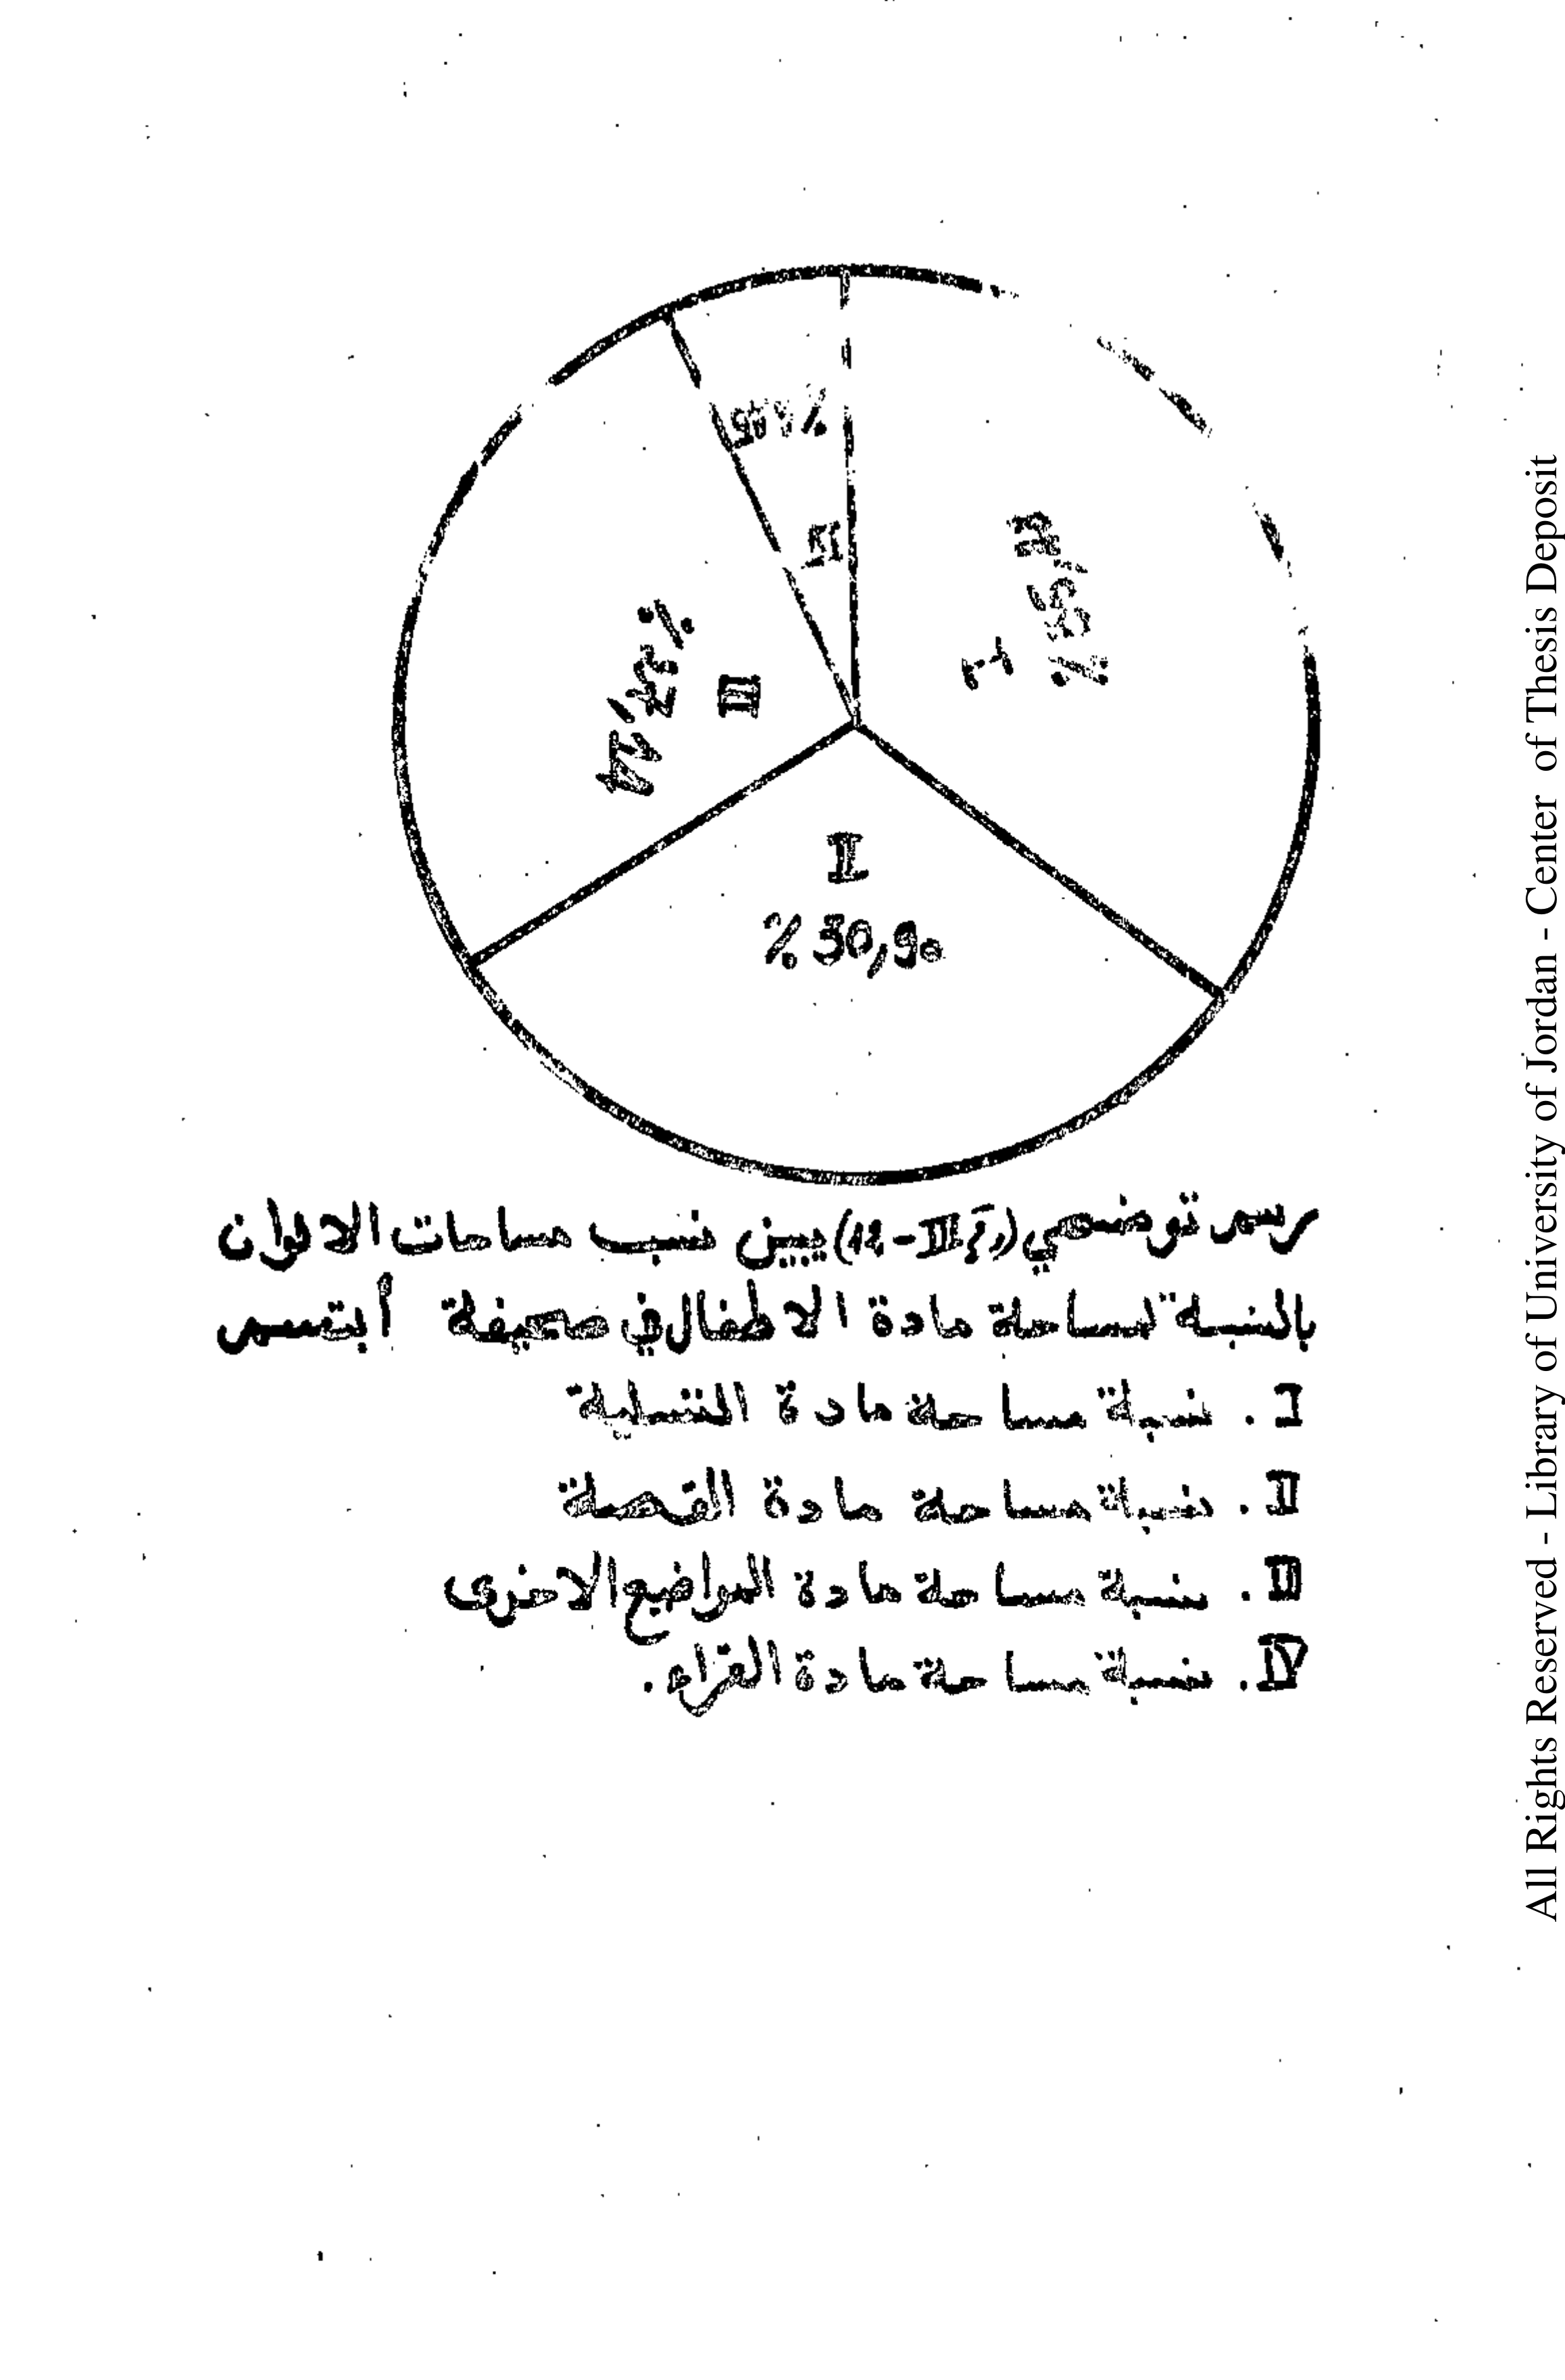 IV
III
% 37,14
I
II
% 30,90
رسم توضيحي (رقم III - 12) يبين نسب مساحات الالوان
بالنسبة لمساحة مادة الاطفال في صحيفة أبتسم
I . نسبة مساحة مادة التسلية
II . نسبة مساحة مادة القصة
III . نسبة مساحة مادة المواضيع الاخرى
IV . نسبة مساحة مادة القراء .
All Rights Reserved - Library of University of Jordan - Center of Thesis Deposit